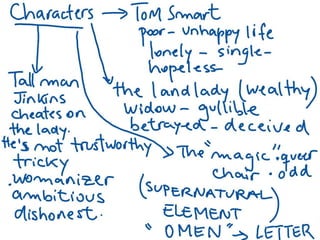 Characters → Tom Smart
poor - unhappy life
lonely - single -
hopeless -
Tall man
Jinkins
cheates on
the lady.
He's not trustworthy
tricky
. womanizer
ambitious
dishonest.
the landlady (wealthy)
widow - gullible
betrayed - deceived
The "magic" . queer
chair . odd
(SUPERNATURAL)
ELEMENT
"OMEN" → LETTER